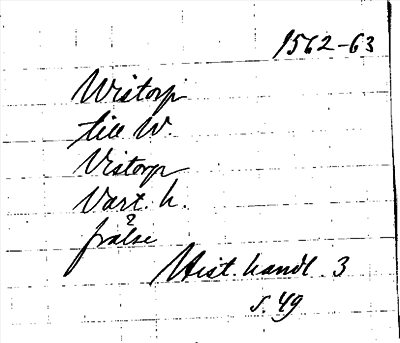 1562-63
Wistorp
till W.
Vistorp
Vart. h.
frälse
Hist. handl. 3
s. 49